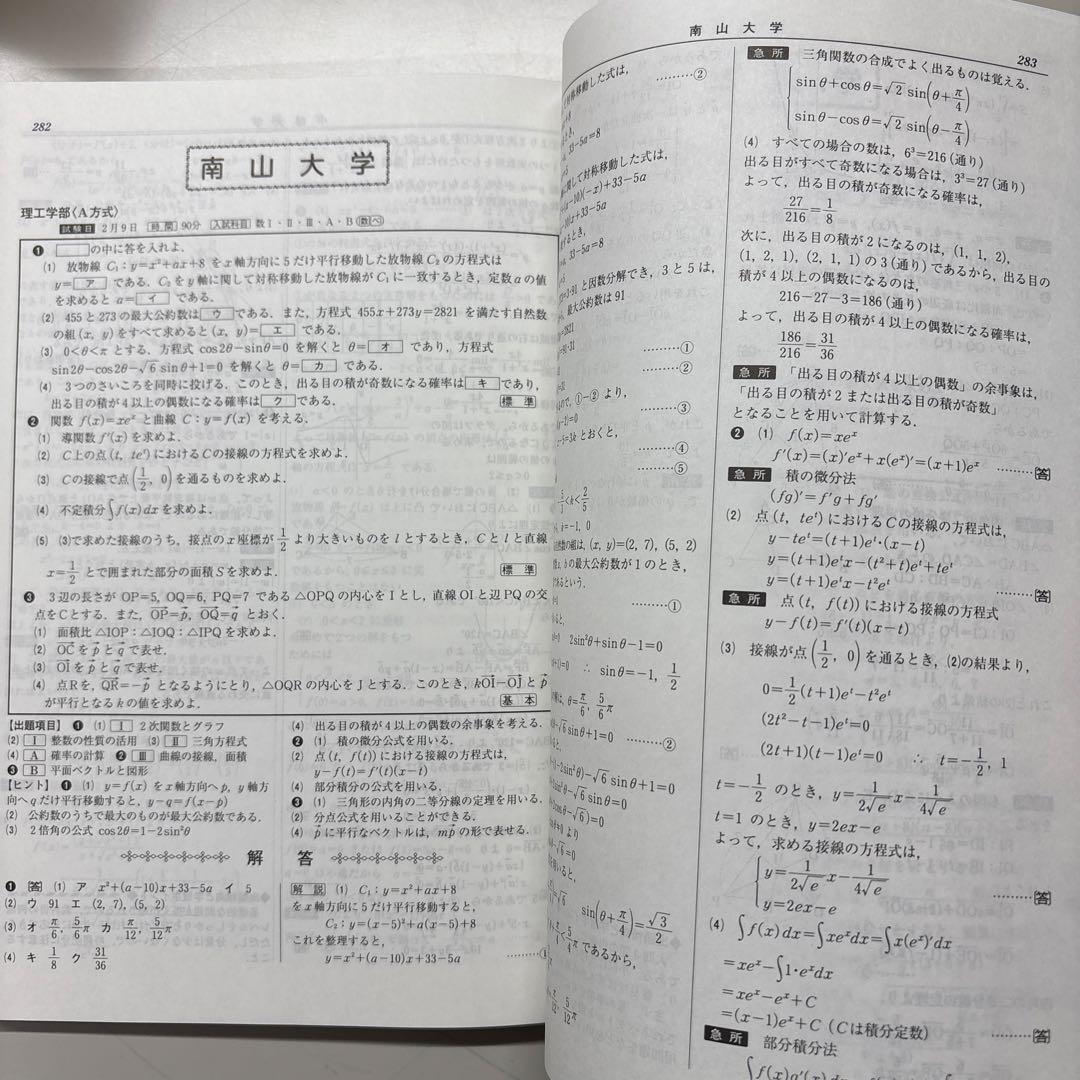 282
南山大学
理工学部〈A方式〉
試験日 2月9日 時間 90分 入試科目 数Ⅰ・Ⅱ・Ⅲ・A・B(数べ)
❶ □の中に答を入れよ．
(1) 放物線 C₁：y=x²+ax+8 をx軸方向に5だけ平行移動した放物線C₂の方程式は
y=ア である．C₂をy軸に関して対称移動した放物線がC₁に一致するとき，定数aの値
を求めると a=イ である．
(2) 455と273の最大公約数はウである．また，方程式 455x+273y=2821 を満たす自然数
の組(x, y)をすべて求めると(x, y)=エ である．
(3) 0<θ<π とする．方程式 cos2θ−sinθ=0 を解くと θ=オ であり，方程式
sin2θ−cos2θ−√6 sinθ+1=0 を解くと θ=カ である．
(4) 3つのさいころを同時に投げる．このとき，出る目の積が奇数になる確率はキであり，
出る目の積が4以上の偶数になる確率はクである． 標準
❷ 関数 f(x)=xeˣ と曲線 C：y=f(x) を考える．
(1) 導関数 f′(x) を求めよ．
(2) C上の点(t, teᵗ)におけるCの接線の方程式を求めよ．
(3) Cの接線で点(1/2, 0)を通るものを求めよ．
(4) 不定積分∫f(x)dxを求めよ．
(5) (3)で求めた接線のうち，接点のx座標が1/2より大きいものを l とするとき，Cと l と直線
x=1/2 とで囲まれた部分の面積Sを求めよ． 標準
❸ 3辺の長さが OP=5, OQ=6, PQ=7 である △OPQ の内心を I とし，直線OIと辺PQの交
点をCとする．また，OP→=p→, OQ→=q→ とおく．
(1) 面積比 △IOP：△IOQ：△IPQ を求めよ．
(2) OC→をp→とq→で表せ．
(3) OI→をp→とq→で表せ．
(4) 点Rを，QR→=−p→ となるようにとり，△OQR の内心を J とする．このとき，kOI→−OJ→とp→
が平行となるkの値を求めよ． 基本
【出題項目】 ❶ (1) Ⅰ 2次関数とグラフ
(2) Ⅰ 整数の性質の活用 (3) Ⅱ 三角方程式
(4) A 確率の計算 ❷ Ⅲ 曲線の接線，面積
❸ B 平面ベクトルと図形
【ヒント】 ❶ (1) y=f(x) をx軸方向へp，y軸方
向へqだけ平行移動すると，y−q=f(x−p)
(2) 公約数のうちで最大のものが最大公約数である．
(3) 2倍角の公式 cos2θ=1−2sin²θ
(4) 出る目の積が4以上の偶数の余事象を考える．
❷ (1) 積の微分公式を用いる．
(2) 点(t, f(t))における接線の方程式は，
y−f(t)=f′(t)(x−t)
(4) 部分積分の公式を用いる．
❸ (1) 三角形の内角の二等分線の定理を用いる．
(2) 分点公式を用いることができる．
(4) p→に平行なベクトルは，mp→の形で表せる．
解 答
❶ 〔答〕 (1) ア x²+(a−10)x+33−5a イ 5
(2) ウ 91 エ (2, 7), (5, 2)
(3) オ π/6, 5/6π カ π/12, 5/12π
(4) キ 1/8 ク 31/36
解説 (1) C₁：y=x²+ax+8
をx軸方向に5だけ平行移動すると，
C₂：y=(x−5)²+a(x−5)+8
これを整理すると，
y=x²+(a−10)x+33−5a
南山大学
283
対称移動した式は， ………②
33−5a=8
に関して対称移動した式は，
a−10)(−x)+33−5a
0)x+33−5a
するとき，
33−5a=8
3・91 と因数分解でき，3と5は，
最大公約数は 91
=2821
………①
………②
①−② より，
−2)=0 ………③
−5=3k とおくと，
………④
………⑤
<k<2/5
k=−1, 0
然数の組は, (x, y)=(2, 7), (5, 2)
bの最大公約数が1のとき，
であるという．
………①
2sin²θ+sinθ−1=0
+1)=0 ∴ sinθ=−1, 1/2
θ=π/6, 5/6π
−√6 sinθ+1=0 ………②
(1−2sin²θ)−√6 sinθ+1=0
sinθ−√6 sinθ=0
θ−√6)=0
より
−√6=0
を用いると，
=√6 sin(θ+π/4)=√3/2
<5/4π であるから，
5/12π
急所 三角関数の合成でよく出るものは覚える．
sinθ+cosθ=√2 sin(θ+π/4)
sinθ−cosθ=√2 sin(θ−π/4)
(4) すべての場合の数は，6³=216(通り)
出る目がすべて奇数になる場合は，3³=27(通り)
よって，出る目の積が奇数になる確率は，
27/216=1/8
次に，出る目の積が2になるのは，(1, 1, 2),
(1, 2, 1), (2, 1, 1)の3(通り)であるから，出る目の
積が4以上の偶数になるのは，
216−27−3=186(通り)
よって，出る目の積が4以上の偶数になる確率は，
186/216=31/36
急所 「出る目の積が4以上の偶数」の余事象は，
「出る目の積が2または出る目の積が奇数」
となることを用いて計算する．
❷ (1) f(x)=xeˣ
f′(x)=(x)′eˣ+x(eˣ)′=(x+1)eˣ ………〔答〕
急所 積の微分法
(fg)′=f′g+fg′
(2) 点(t, teᵗ)におけるCの接線の方程式は，
y−teᵗ=(t+1)eᵗ・(x−t)
y=(t+1)eᵗx−(t²+t)eᵗ+teᵗ
y=(t+1)eᵗx−t²eᵗ ………〔答〕
急所 点(t, f(t))における接線の方程式
y−f(t)=f′(t)(x−t)
(3) 接線が点(1/2, 0)を通るとき，(2)の結果より，
0=1/2(t+1)eᵗ−t²eᵗ
(2t²−t−1)eᵗ=0
(2t+1)(t−1)eᵗ=0 ∴ t=−1/2, 1
t=−1/2 のとき，y=1/(2√e)x−1/(4√e)
t=1 のとき，y=2ex−e
よって，求める接線の方程式は，
y=1/(2√e)x−1/(4√e)
y=2ex−e ………〔答〕
(4) ∫f(x)dx=∫xeˣdx=∫x(eˣ)′dx
=xeˣ−∫1・eˣdx
=xeˣ−eˣ+C
=(x−1)eˣ+C (Cは積分定数) ………〔答〕
急所 部分積分法
∫f(x)g′(x)